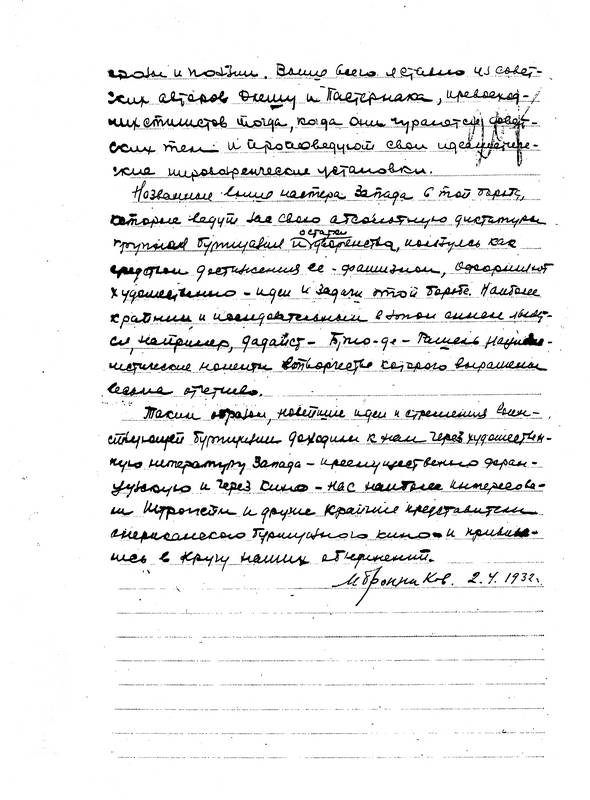 прозы и поэзии. Выше всего я ставлю из совет-
ских авторов Олешу и Пастернака, превосход-
ных стилистов тогда, когда они чураются совет-
ских тем и проповедуют свои идеалистиче-
ские мировоззренческие установки.
Названные выше мастера Запада в той борьбе,
которую ведут за свою абсолютную диктатуру
крупная буржуазия и остатки дворянства, пользуясь как
средством достижения ее - фашизмом, оформляют
художественно - идеи и задачи этой борьбы. Наиболее
крайним и последовательным в этом смысле являет-
ся, например, дадаист -
моменты в творчестве которого выражены
весьма отчетливо.
Таким образом, новейшие идеи и стремления воин-
ствующей буржуазии доходили к нам через художествен-
ную литературу Запада - преимущественно фран-
цузскую и через кино - нас наиболее интересова-
ли и другие крайние представители
американского буржуазного кино - и
лись в кругу наших объединений.
МБронников. 2.V.1932г.